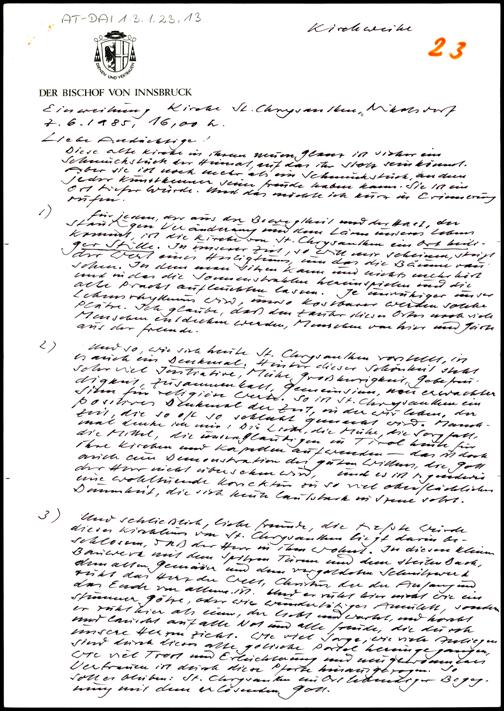 AT-DAI 1.3.1.23.13
Kirchweihe
23
DER BISCHOF VON INNSBRUCK
Einweihung Kirche St. Chrysanthen, Nikolsdorf
7.6.1985, 16,00 h.
Liebe Andächtige!
Diese alte Kirche in ihrem neuen Glanz ist sicher ein
Schmuckstück der Heimat, auf das ihr stolz sein könnt.
Aber sie ist noch mehr als ein Schmuckstück, an dem
jeder Kunstkenner seine Freude haben kann. Sie ist ein
Ort tiefer Würde. Und das möchte ich kurz in Erinnerung
rufen.
1) Für jeden, der aus der Beweglichkeit und der Hast, der
ständigen Veränderung und dem Lärm unseres Lebens
kommt, ist die Kirche von St. Chrysanthen ein Ort heili-
ger Stille. In unserer Zeit, so will mir scheinen, steigt
der Wert eines Heiligtums, um das die Bäume rau-
schen. In dem man sitzen kann und nichts mehr hört
und in das die Sonnenstrahlen hereinspielen und die
alte Pracht aufleuchten lassen. Je unruhiger unser
Lebensrhythmus wird, umso kostbarer werden solche
Plätze. Ich glaube, daß den Zauber dieses Ortes noch viele
Menschen entdecken werden, Menschen von hier und Gäste
aus der Fremde.
2) Und so, wie sich heute St. Chrysanthen vorstellt, ist
es auch ein Denkmal. Hinter dieser Schönheit steht
sehr viel Initiative, Mühe, Großherzigkeit, Gebefreu-
digkeit, Zusammenhalt, Gemeinsinn, neu erwachter
Sinn für religiöse Werte. So ist St. Chrysanthen ein
Denkmal der Zeit, in der wir leben, der
Zeit, die so oft so schlecht gemacht wird. Manch-
mal denke ich mir: Die Liebe, die Mühe, die Sorgfalt,
die Mittel, die unsere Gläubigen in Tirol auch für
Ihre Kirchen und Kapellen aufwenden – das ist doch
auch eine Demonstration des guten Willens, die Gott
der Herr nicht übersehen wird. Und es ist irgendwie
eine wohltuende Korrektur zu so viel oberflächlicher
Dummheit, die sich heute lautstark in Szene setzt.
3) Und schließlich, liebe Freunde, die tiefste Würde
dieses Kirchleins von St. Chrysanthen liegt darin be-
schlossen, daß der Herr in ihm wohnt. In diesem kleinen
Bauwerk mit dem spitzen Turm und dem steilen Dach,
dem alten Gemäuer und dem vergoldeten Schnitzwerk
ruht das Herz der Welt, Christus der der Anfang und
das Ende von allem ist. Und er ruht hier nicht wie ein
stummer Götze, oder wie wundertätiges Amulett, sondern
er ruht hier als einer, der liebt und wartet, und horcht
und lauscht auf alle Not und alle Freude, die durch
unsere Herzen zieht. Wie viel Sorge, wie viele Anliegen
sind durch dieses alte gotische Portal hereingegangen,
wie viel Trost und Erleichterung und neugewonnenes
Vertrauen ist durch diese Pforte hinausgezogen. So
soll es bleiben: St. Chrysanthen ein Ort lebendiger Begeg-
nung mit dem erlösenden Gott.